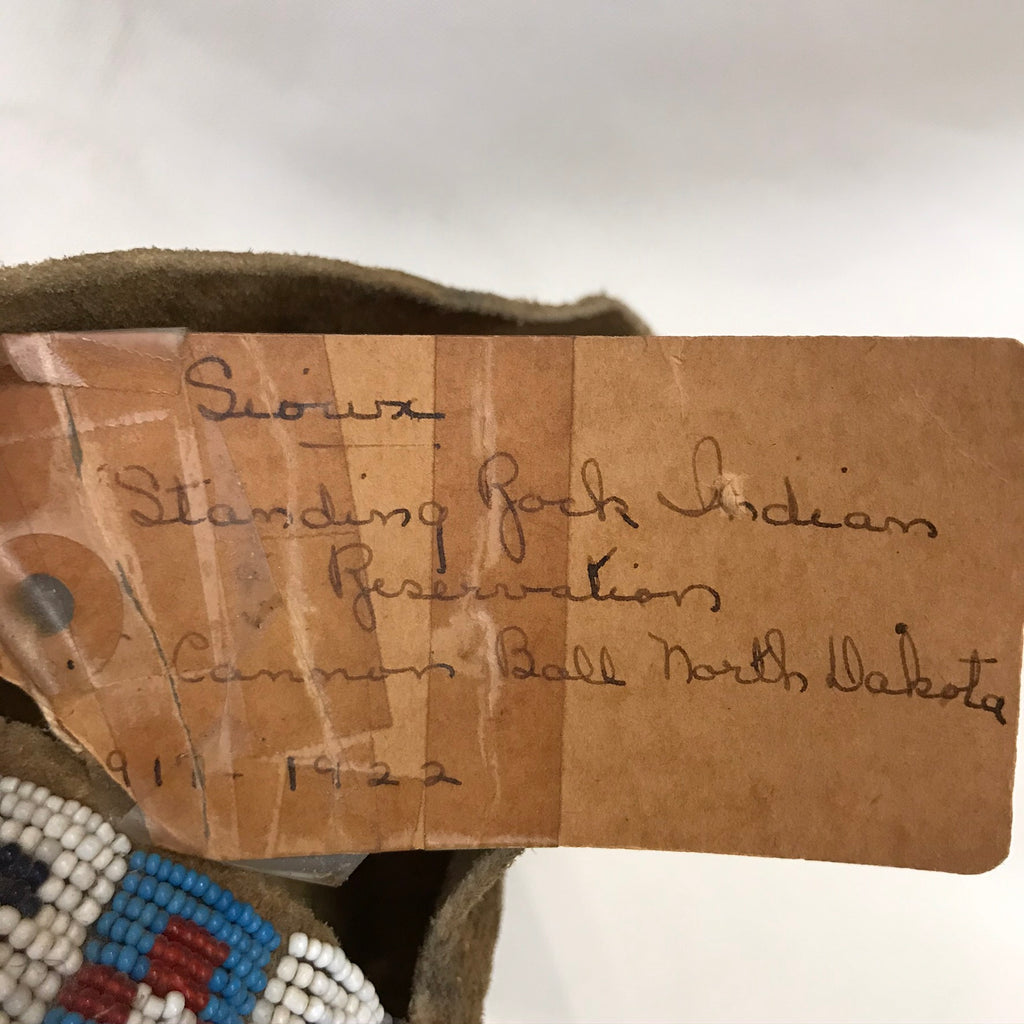 Sioux
Standing Rock Indian
Reservation
Cannon Ball North Dakota
917-1922